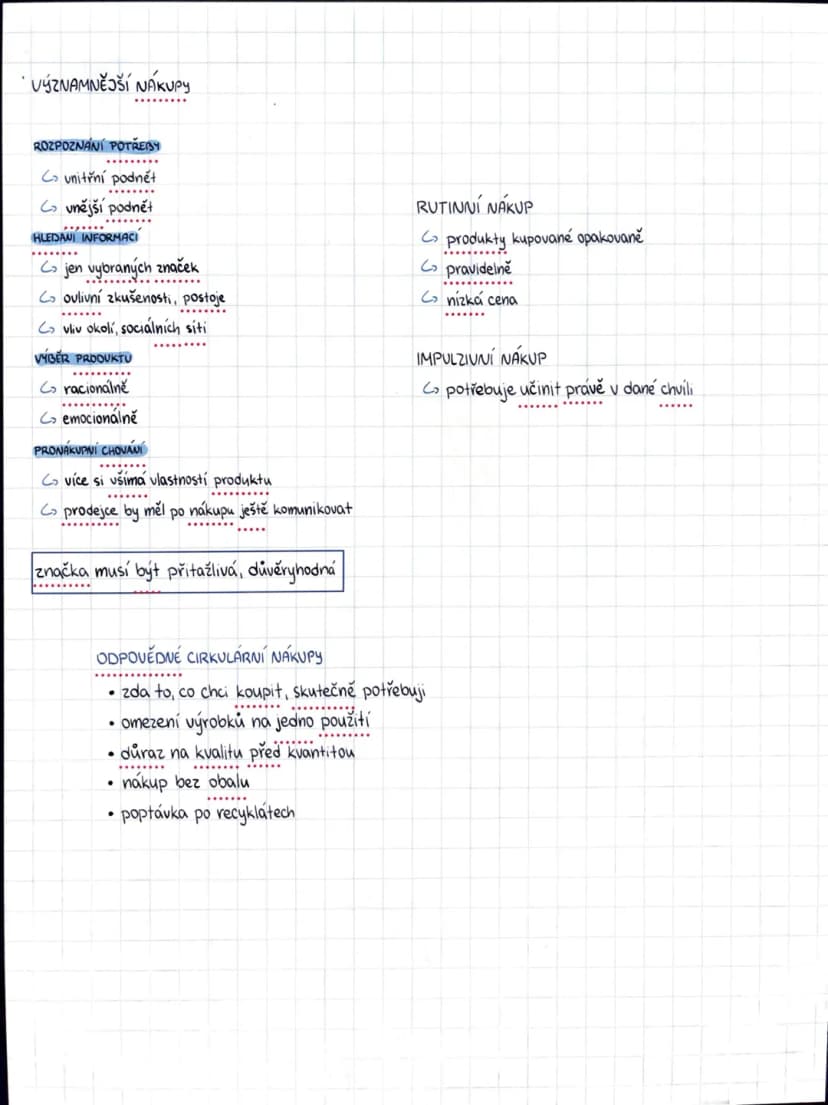 VÝZNAMNĚJŠÍ NÁKUPY
ROZPOZNÁNÍ POTŘEBY
↳ vnitřní podnět
↳ vnější podnět
HLEDÁNÍ INFORMACÍ
↳ jen vybraných značek
↳ ovlivní zkušenosti, postoje
↳ vliv okolí, sociálních sítí
VÝBĚR PRODUKTU
↳ racionálně
↳ emocionálně
PRONÁKUPNÍ CHOVÁNÍ
↳ více si všímá vlastností produktu
↳ prodejce by měl po nákupu ještě komunikovat
značka musí být přitažlivá, důvěryhodná
RUTINNÍ NÁKUP
↳ produkty kupované opakovaně
↳ pravidelně
↳ nízká cena
IMPULZIVNÍ NÁKUP
↳ potřebuje učinit právě v dané chvíli
ODPOVĚDNÉ CIRKULÁRNÍ NÁKUPY
• zda to, co chci koupit, skutečně potřebuji
• omezení výrobků na jedno použití
• důraz na kvalitu před kvantitou
• nákup bez obalu
• poptávka po recyklátech